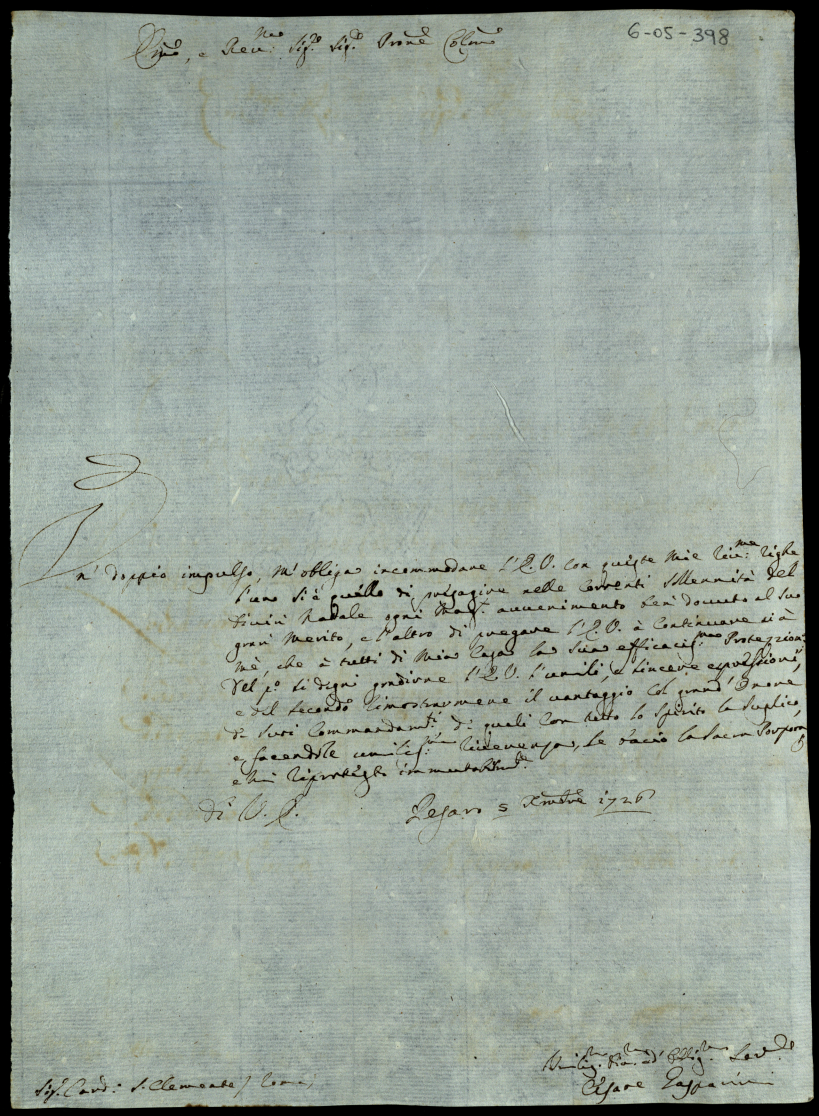 6-05-398
Em̃o, e Reu:mo Sig.re Sig.re Pron̄e Col̄mo
Un doppio impulso, m'obliga incommodare l'E.V. con queste mie riu:me righe
l'uno si è quello di presagire nelle correnti sollennità del
Divin Natale ogni magg: auuenimento ben douuto al suo
gran merito, e l'altro di pregare l'E.V. à continuare sì à
mè, che à tutti di mia Casa la sua efficacis:ma Protezzione:
Del p.o si degni gradirne l'E.V. l'umili, e sincere espressioni,
e del secondo dimostrarmene il vantaggio col grand'onore
de suoi commandam.ti di quali con tutto lo spirito la suplico,
e facendole umilis:ma riuerenza, le bacio la sacra Porpora
e mi riprotesto immutabilm.te
Di V. E.
Pesaro 5 Xmbre 1726
Umilis:mo Diu:mo ed Oblig:mo Seru.re
Cesare Gasparini
Sig. Card: S. Clemente / Roma